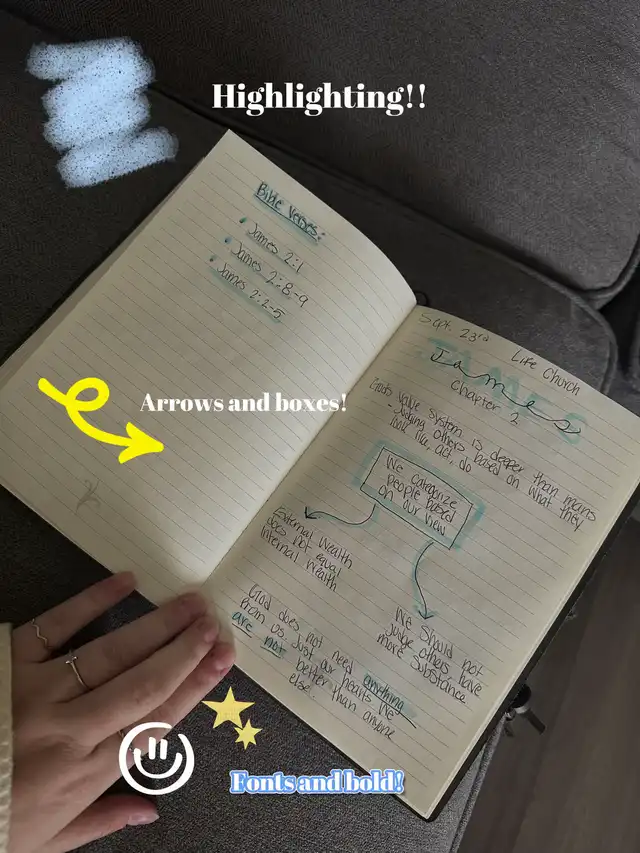 Highlighting!!
Bible Verses:
James 2:1
James 2:8-9
James 2:2-5
Arrows and boxes!
Sept. 23rd
Life Church
JAMES
James
Chapter 2
Gods value system is deeper than mans
- Judging others based on what they
look like, act, do
We categorize
people based
on our view
External wealth
does not equal
internal wealth
We should not
judge others have
more substance
God does not need anything
from us. Just our hearts We
are not better than anyone
else.
Fonts and bold!